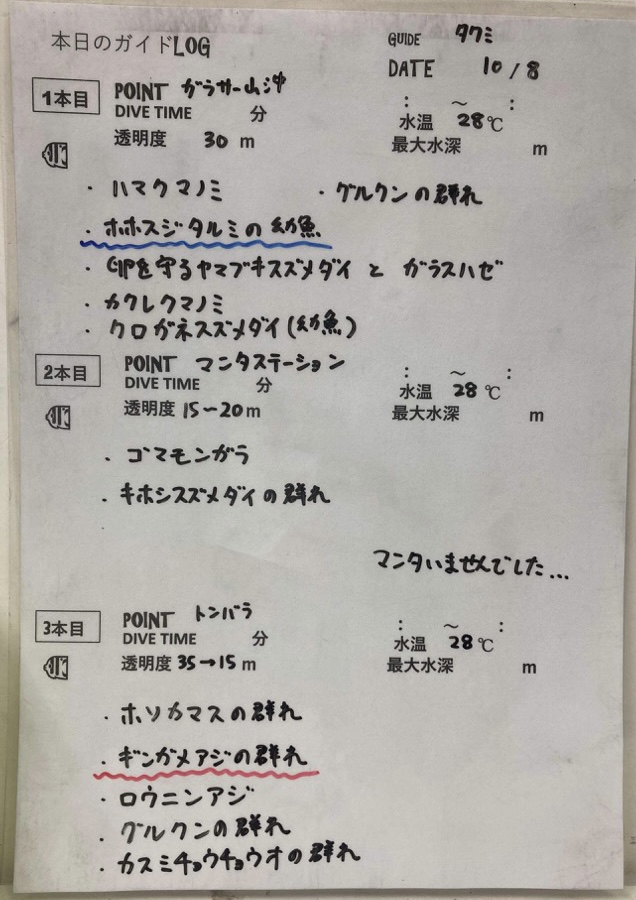 本日のガイドLOG
GUIDE タクミ
DATE 10/8
1本目
POINT ガラサー山沖
DIVE TIME 分
: ～ :
透明度 30 m
水温 28℃
最大水深 m
・ハマクマノミ ・グルクンの群れ
・ホホスジタルミの幼魚
・卵を守るヤマブキスズメダイと ガラスハゼ
・カクレクマノミ
・クロガネスズメダイ(幼魚)
2本目
POINT マンタステーション
DIVE TIME 分
: ～ :
透明度 15~20m
水温 28℃
最大水深 m
・ゴマモンガラ
・キホシスズメダイの群れ
マンタいませんでした...
3本目
POINT トンバラ
DIVE TIME 分
: ～ :
透明度 35→15 m
水温 28℃
最大水深 m
・ホソカマスの群れ
・ギンガメアジの群れ
・ロウニンアジ
・グルクンの群れ
・カスミチョウチョウオの群れ